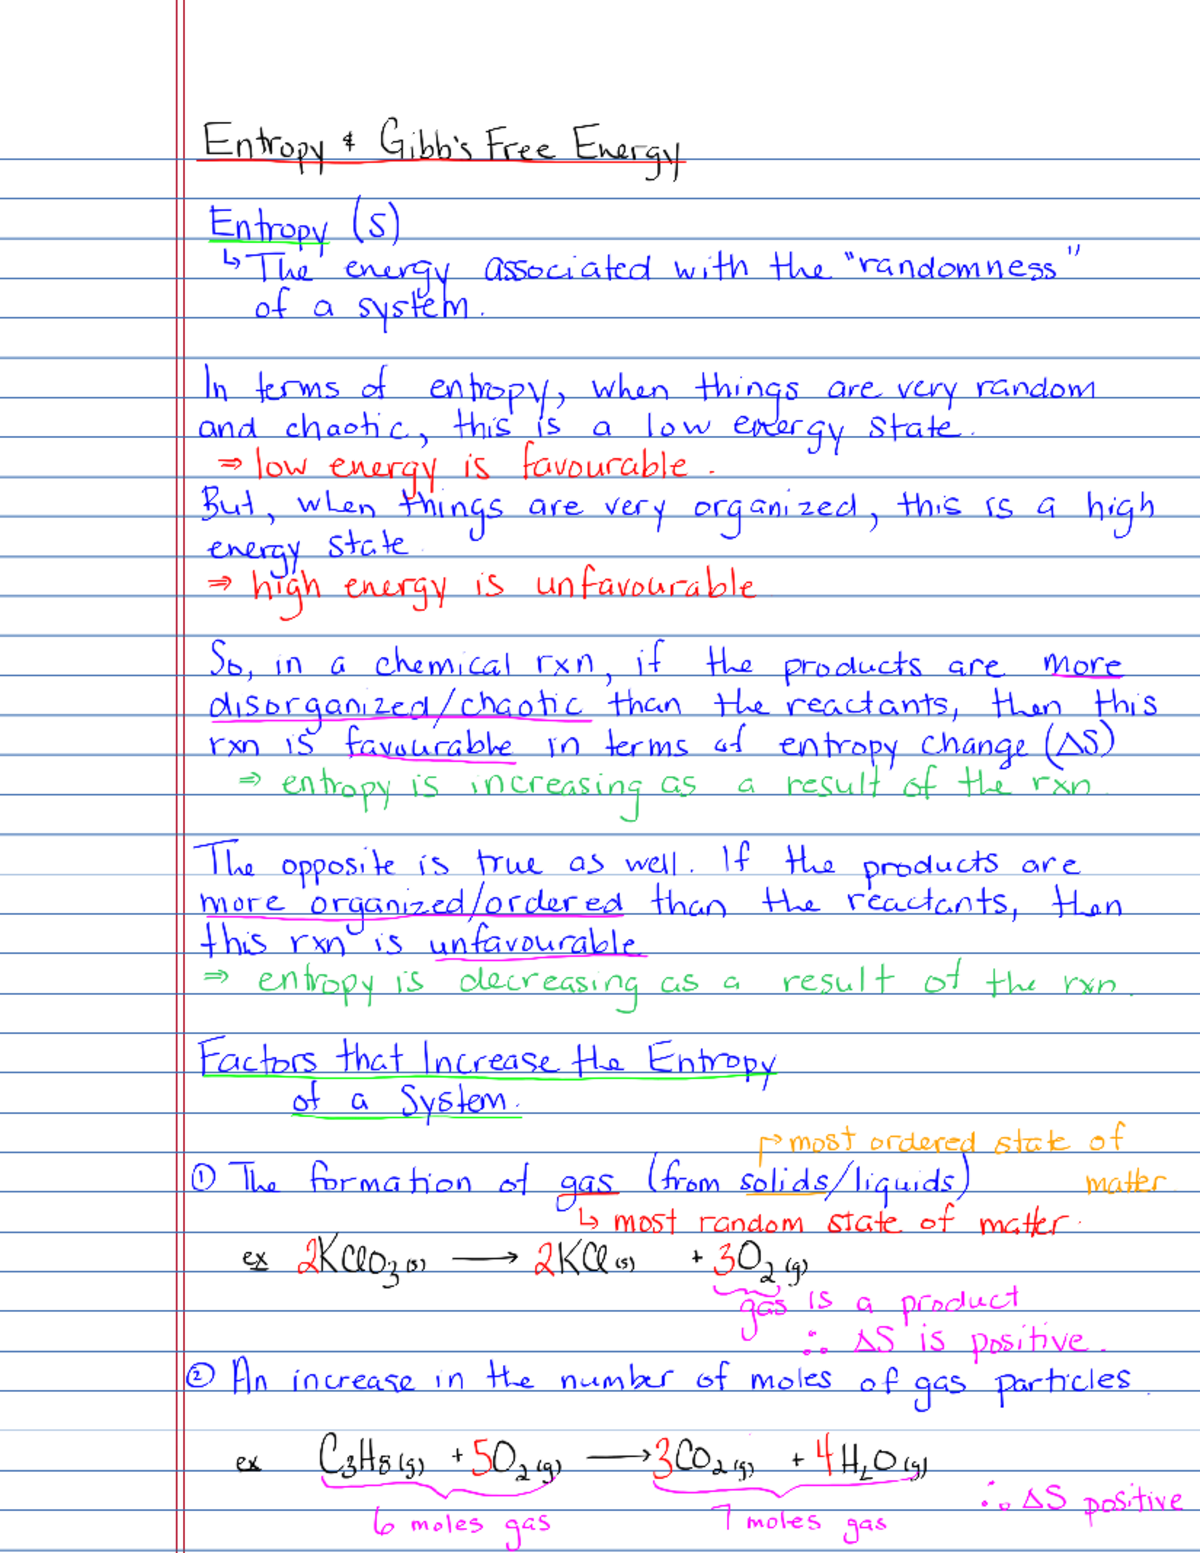 Entropy & Gibb's Free Energy
Entropy (S)
↳ The energy associated with the "randomness"
of a system.
In terms of entropy, when things are very random
and chaotic, this is a low energy state.
⇒ low energy is favourable.
But, when things are very organized, this is a high
energy state.
⇒ high energy is unfavourable
So, in a chemical rxn, if the products are more
disorganized/chaotic than the reactants, then this
rxn is favourable in terms of entropy change (ΔS)
⇒ entropy is increasing as a result of the rxn
The opposite is true as well. If the products are
more organized/ordered than the reactants, then
this rxn is unfavourable
⇒ entropy is decreasing as a result of the rxn.
Factors that Increase the Entropy
of a System.
↱ most ordered state of
① The formation of gas (from solids/liquids) matter
↳ most random state of matter.
ex 2KClO₃(s) ⟶ 2KCl(s) + 3O₂(g)
gas is a product
∴ ΔS is positive.
② An increase in the number of moles of gas particles.
ex C₃H₈(g) + 5O₂(g) ⟶ 3CO₂(g) + 4H₂O(g)
∴ ΔS positive
6 moles gas 7 moles gas